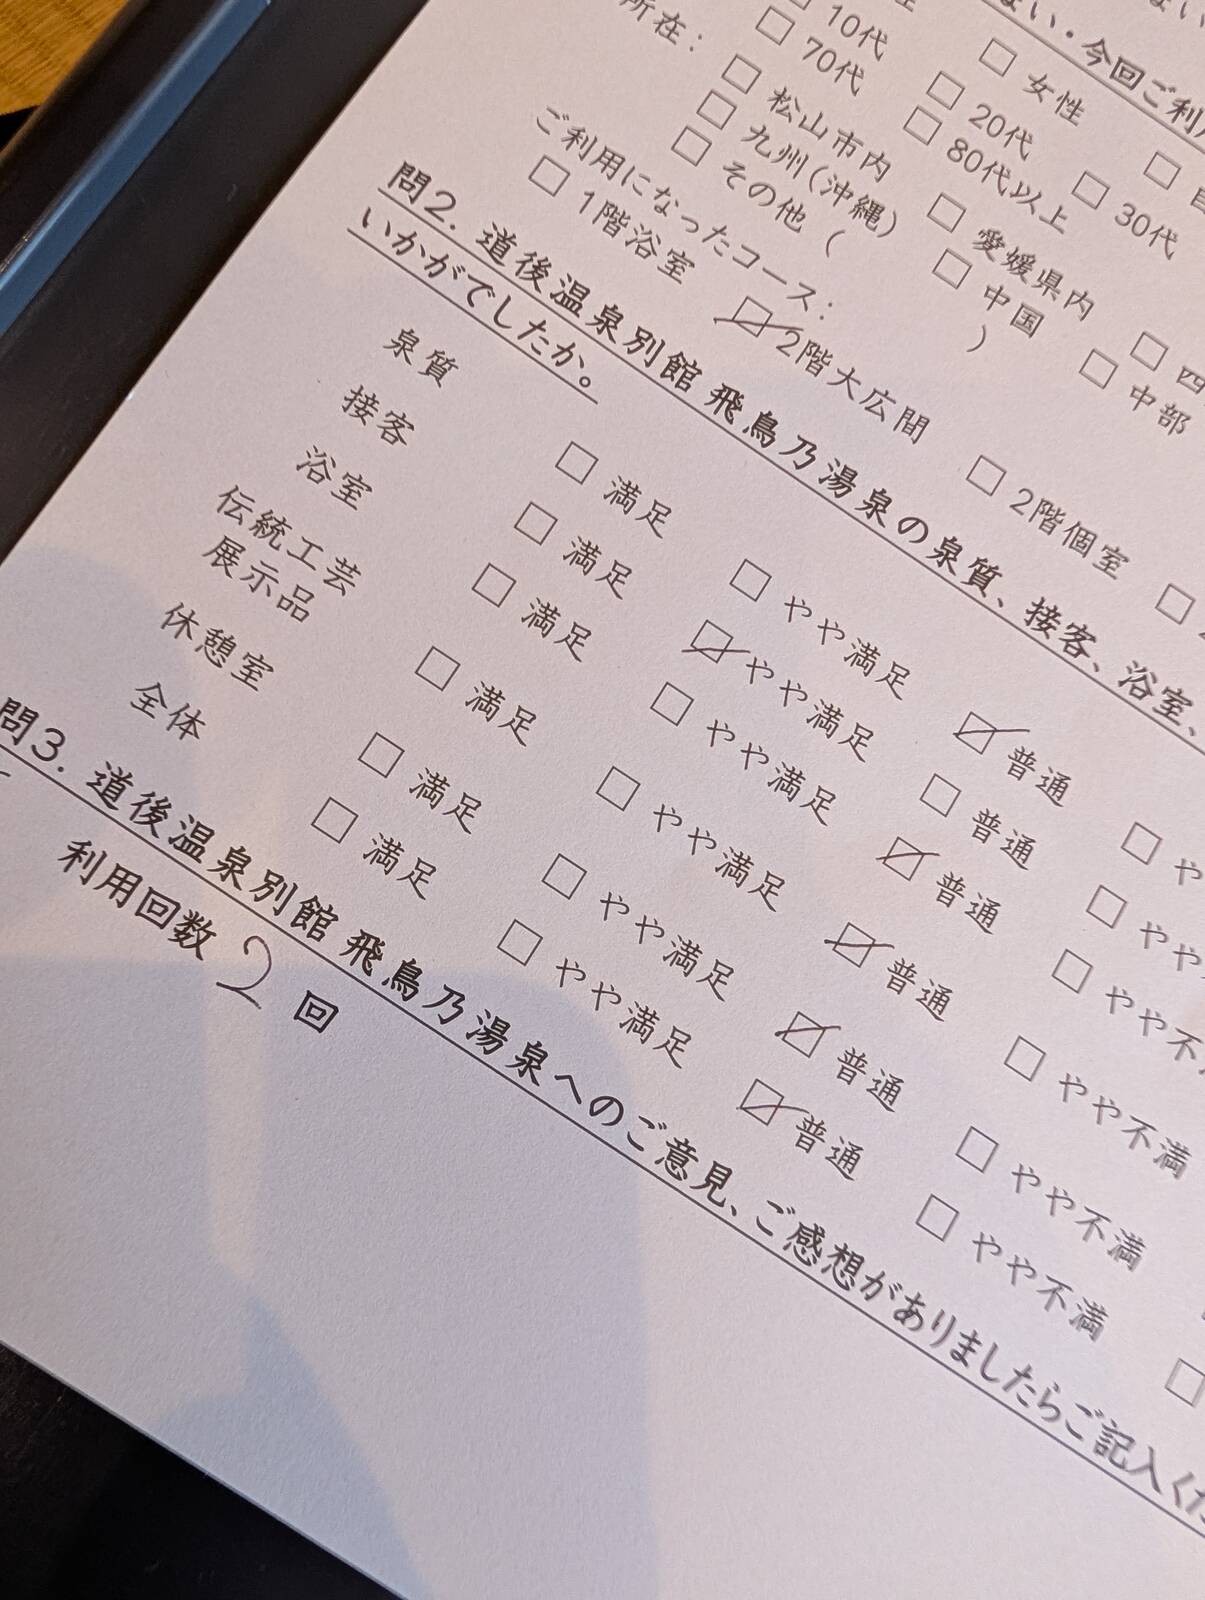 ない・今回ご利
□ 女性
□ 10代 □ 20代 □ 30代
□ 70代 □ 80代以上
所在: □ 松山市内 □ 愛媛県内 □ 四
□ 九州(沖縄) □ 中国 □ 中部
□ その他 ( )
ご利用になったコース:
□ 1階浴室 ☑ 2階大広間 □ 2階個室 □
問2. 道後温泉別館 飛鳥乃湯泉の泉質、接客、浴室、
いかがでしたか。
泉質 □ 満足 □ やや満足 ☑ 普通 □ や
接客 □ 満足 ☑ やや満足 □ 普通 □ やや
浴室 □ 満足 □ やや満足 ☑ 普通 □ やや不
伝統工芸
展示品 □ 満足 □ やや満足 ☑ 普通 □ やや不満
休憩室 □ 満足 □ やや満足 ☑ 普通 □ やや不満
全体 □ 満足 □ やや満足 ☑ 普通 □ やや不満 □
問3. 道後温泉別館 飛鳥乃湯泉へのご意見、ご感想がありましたらご記入くだ
利用回数 2 回